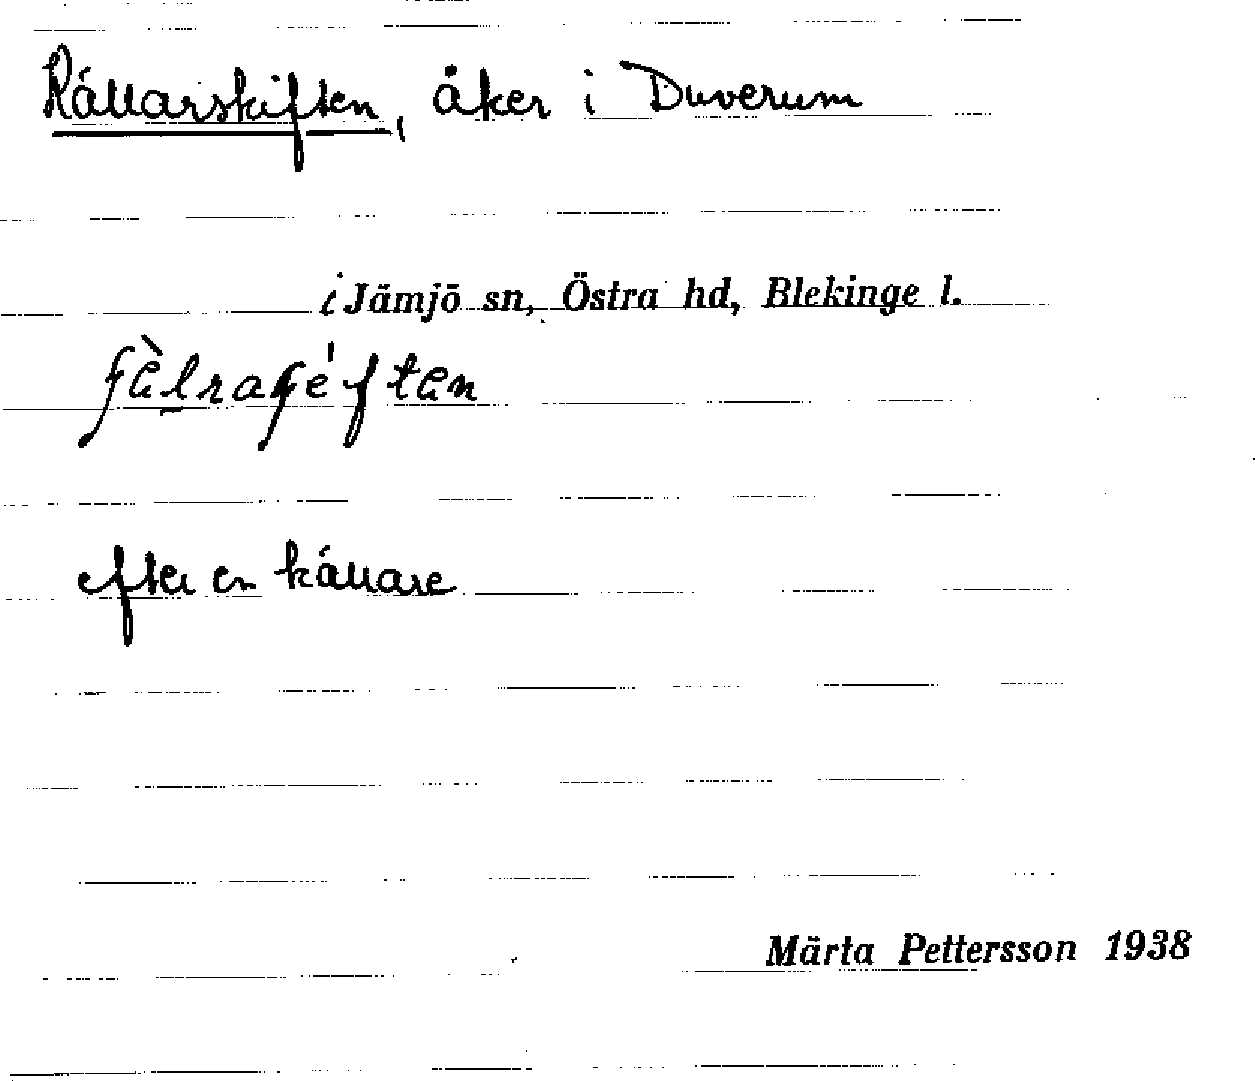 Källarskiften, åker i Duverum
i Jämjö sn, Östra hd, Blekinge l.
efter en källare
Märta Pettersson 1938